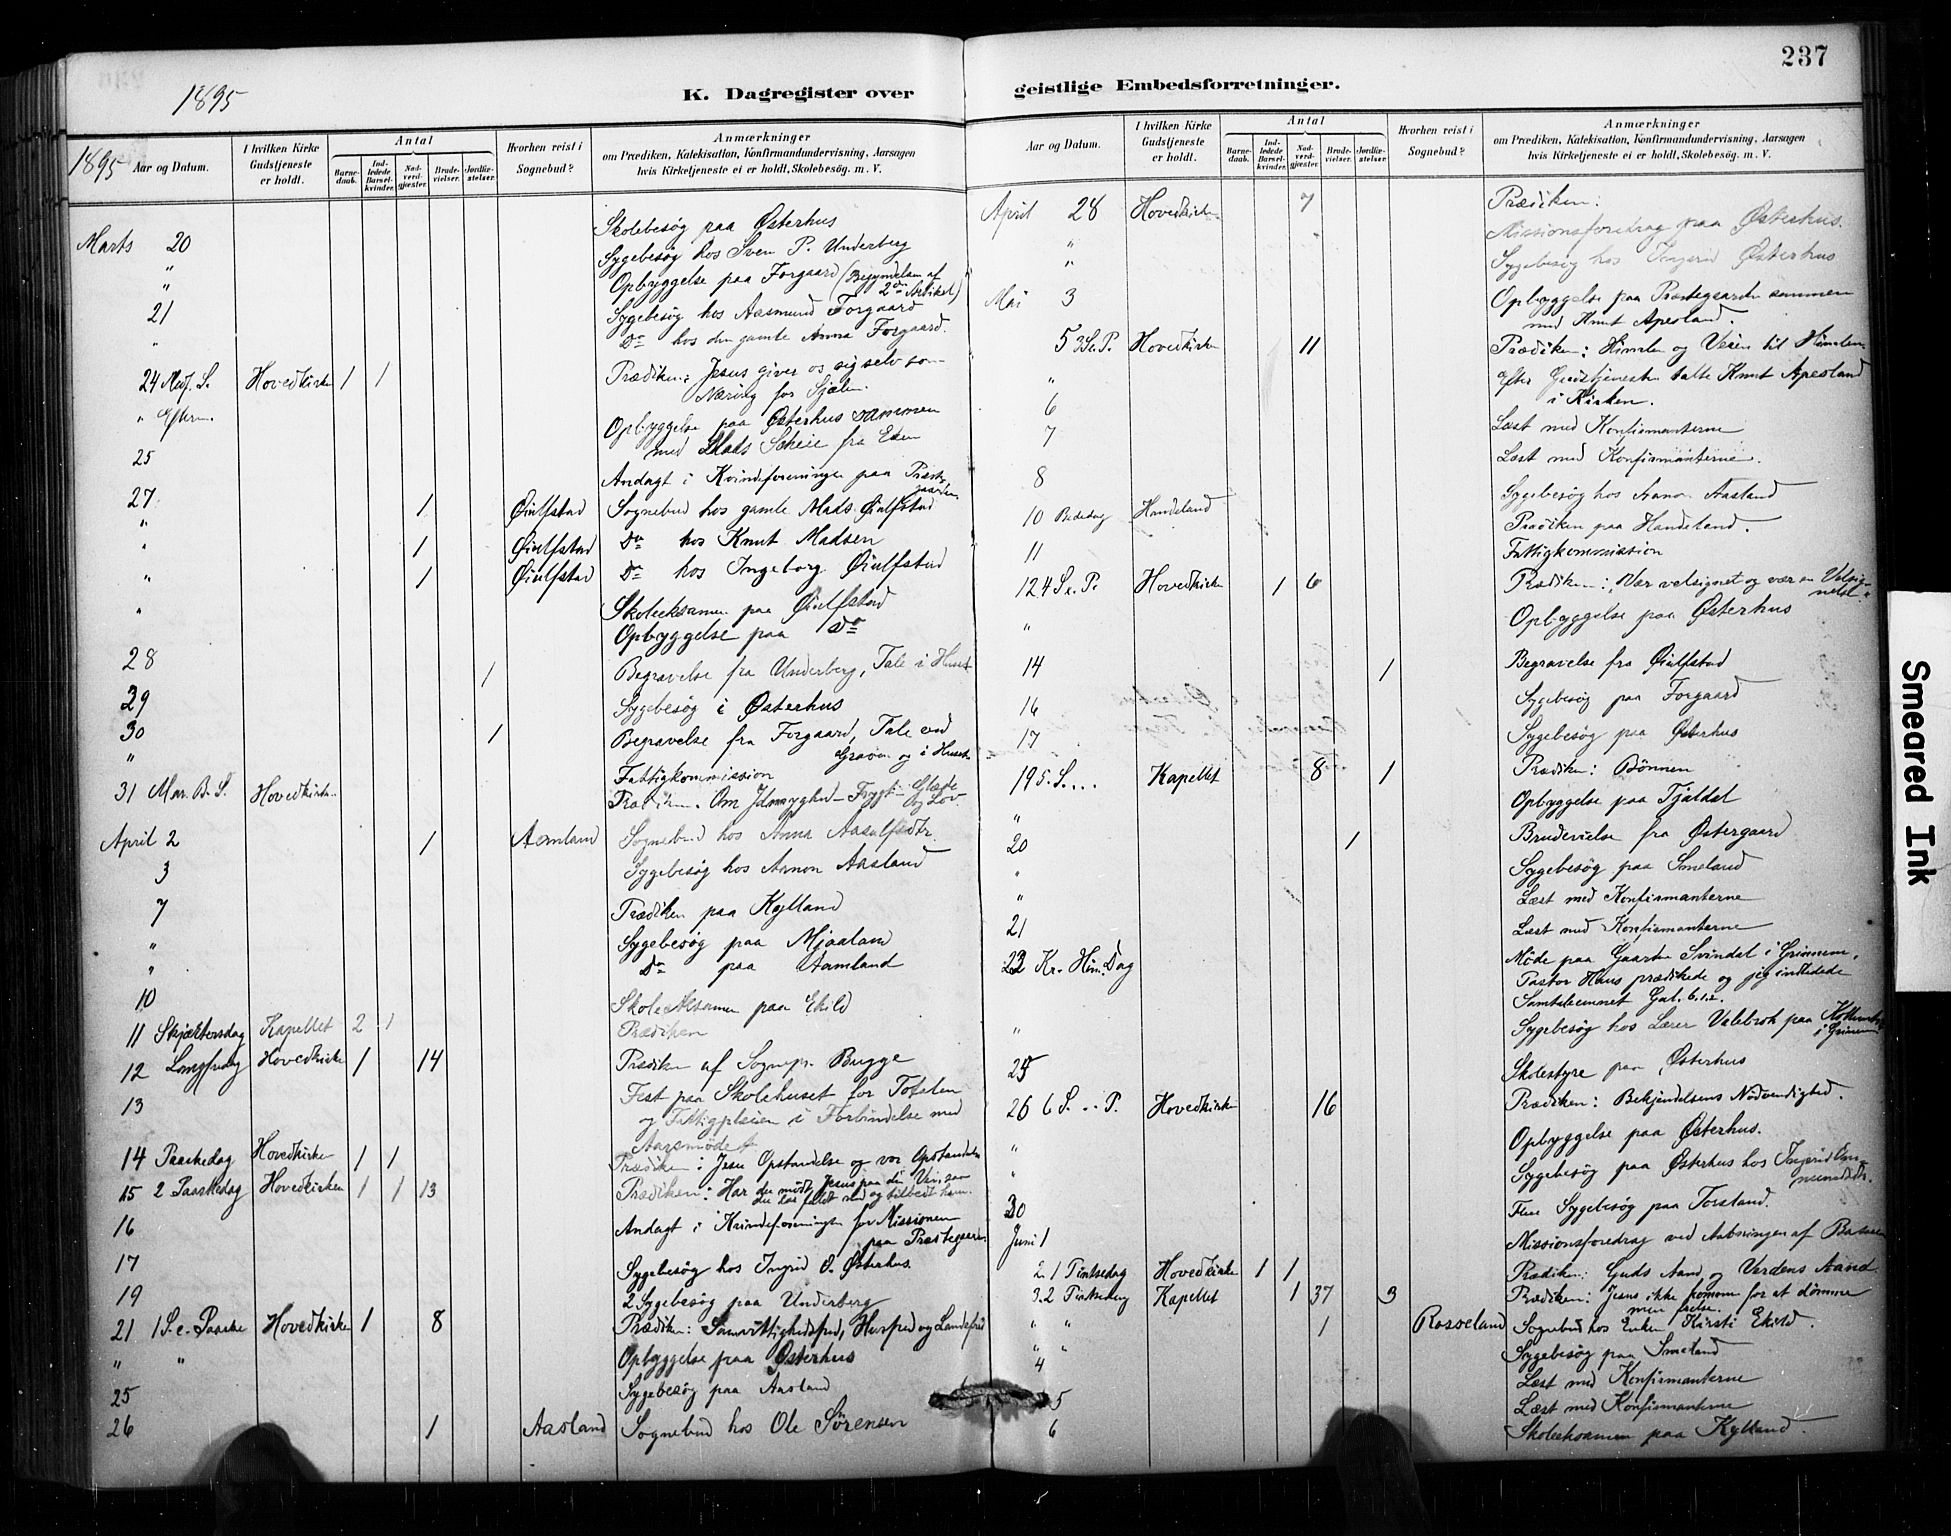 1895
K. Dagregister over
1895 Aar og Datum.
I hvilken Kirke Gudstjeneste er holdt.
Antal
Barnedaab.
Indledede Barselkvinder.
Nadverdgjæster.
Brudevielser.
Jordfæstelser.
Hvorhen reist i Sognebud?
Anmærkninger
om Prædiken, Katekisation, Konfirmandundervisning, Aarsagen
hvis Kirketjeneste ei er holdt, Skolebesøg. m. V.
Marts 20 Skolebesøg paa Østerhus
" Sygebesøg hos Sven P. Underberg
" Opbyggelse paa Forgaard (Begyndelsen af
2den Artikel)
21 Sygebesøg hos Aasmund Forgaard
" Do hos den gamle Anna Forgaard.
24 Midf. S. Hovedkirke 1 1 Prædiken: Jesus giver os sig selv som
Næring for Sjælen.
" Efterm. Opbyggelse paa Østerhus sammen
med Mads Scheie fra Eken
25 Andagt i Kvindeforeningen paa Præste-
gaarden
27 1 Øiulfstad Sognebud hos gamle Mads Øiulfstad
" 1 Øiulfstad Do hos Knut Madsen
" 1 Øiulfstad Do hos Ingeborg Øiulfstad
" Skoleeksamen paa Øiulfstad
Opbyggelse paa Do
28 1 Begravelse fra Underberg, Tale i Huset
29 Sygebesøg i Østerhus
30 1 Begravelse fra Forgaard, Tale ved
Graven og i Huset
" Fattigkommission
31 Mar. B. S. Hovedkirke Prædiken. Om Ydmyghed - Frygt - Glæde
og Lov
April 2 1 Aamland Sognebud hos Anna Aasulfsdtr
3 Sygebesøg hos Aanon Aasland
7 Prædiken paa Kylland
" Sygebesøg paa Mjaaland
" Do paa Aamland
10 Skoleeksamen paa Ekild
11 Skjærtorsdag Kapellet 2 1 Prædiken
12 Langfredag Hovedkirke 1 14 Prædiken af Sognepr. Bugge
13 Fest paa Skolehuset for Totalen
og Fattigpleien i Forbindelse med
Aarsmødet
14 Paaskedag Hovedkirke 1 1 Prædiken: Jesu Opstandelse og vor Opstandelse
15 2 Paaskedag Hovedkirken 1 1 13 Prædiken: Har du mødt Jesus paa din Vei, saa
du har faldt ned og tilbedt ham.
16 Andagt i Kvindeforeningen for Missionen
paa Præstegaarden
17 Sygebesøg hos Ingrid O. Østerhus.
19 2 Sygebesøg paa Underberg
21 1 S. e. Paaske Hovedkirke 1 8 Prædiken: Samvittighedsfred, Husfred og Landefred
" " Opbyggelse paa Østerhus
25 Sygebesøg paa Aasland
26 1 Aasland Sognebud hos Ole Sörensen
237
geistlige Embedsforretninger.
Aar og Datum.
I hvilken Kirke Gudstjeneste er holdt.
Antal
Barnedaab.
Indledede Barselkvinder.
Nadverdgjæster.
Brudevielser.
Jordfæstelser.
Hvorhen reist i Sognebud?
Anmærkninger
om Prædiken, Katekisation, Konfirmandundervisning, Aarsagen
hvis Kirketjeneste ei er holdt, Skolebesøg. m. V.
April 28 Hovedkirke 7 Prædiken:
" Missionsforedrag paa Østerhus.
" Sygebesøg hos Ingerid Østerhus
Mai 3 Opbyggelse paa Præstegaarden sammen
med Knut Apesland.
5 3 S. e. P. Hovedkirke 11 Prædiken: Himlen og Veien til Himlen
" Efter Gudstjenesten talte Knut Apesland
i Kirken.
6 Læst med Konfirmanterne
7 Læst med Konfirmanterne.
8 Sygebesøg hos Aanon Aasland
10 Bededag Handeland Prædiken paa Handeland.
11 Fattigkommission
12 4 S. e. P. Hovedkirke 1 6 Prædiken: „Vær velsignet og vær en Velsig-
nelse."
" Opbyggelse paa Østerhus
14 1 Begravelse fra Øiulfstad
16 Sygebesøg paa Forgaard
17 Sygebesøg paa Østerhus
19 5. S. ... Kapellet 8 1 Prædiken: Bønnen
" Opbyggelse paa Tjaldal
20 1 Brudevielse fra Østergaard
" Sygebesøg paa Smeland
" Læst med Konfirmanterne
21 Læst med Konfirmanterne
23 Kr. Him. Dag Møde paa Gaarden Svindal i Grinnem.
Pastor Haus prædikede og jeg indledede
Samtaleemnet Gal. 6.1.2.
" Sygebesøg hos Lærer Valebrok paa
i Grinnem
25 Skolestyre paa Østerhus
26 6 S. .. P. Hovedkirke 16 Prædiken: Bekjendelsens Nødvendighed.
" Opbyggelse paa Østerhus.
" Sygebesøg paa Østerhus hos Ingrid
30 Flere Sygebesøg paa Torsland.
Juni 1 Missionsforedrag ved Aabningen af Basaren
2. 1 Pintsedag Hovedkirke 1 1 Prædiken: Guds Aand og Verdens Aand
3. 2 Pintsedag Kapellet 1 37 3 Prædiken: Jesus ikke kommen for at dömme
men frelse.
" " 1 Rosseland Sognebud hos Enken Kirsti Ekild.
" " Sygebesøg paa Smeland
4 Læst med Konfirmanterne
5 Læst med Konfirmanterne
6 Skoleeksamen paa Kylland.
Smeared Ink